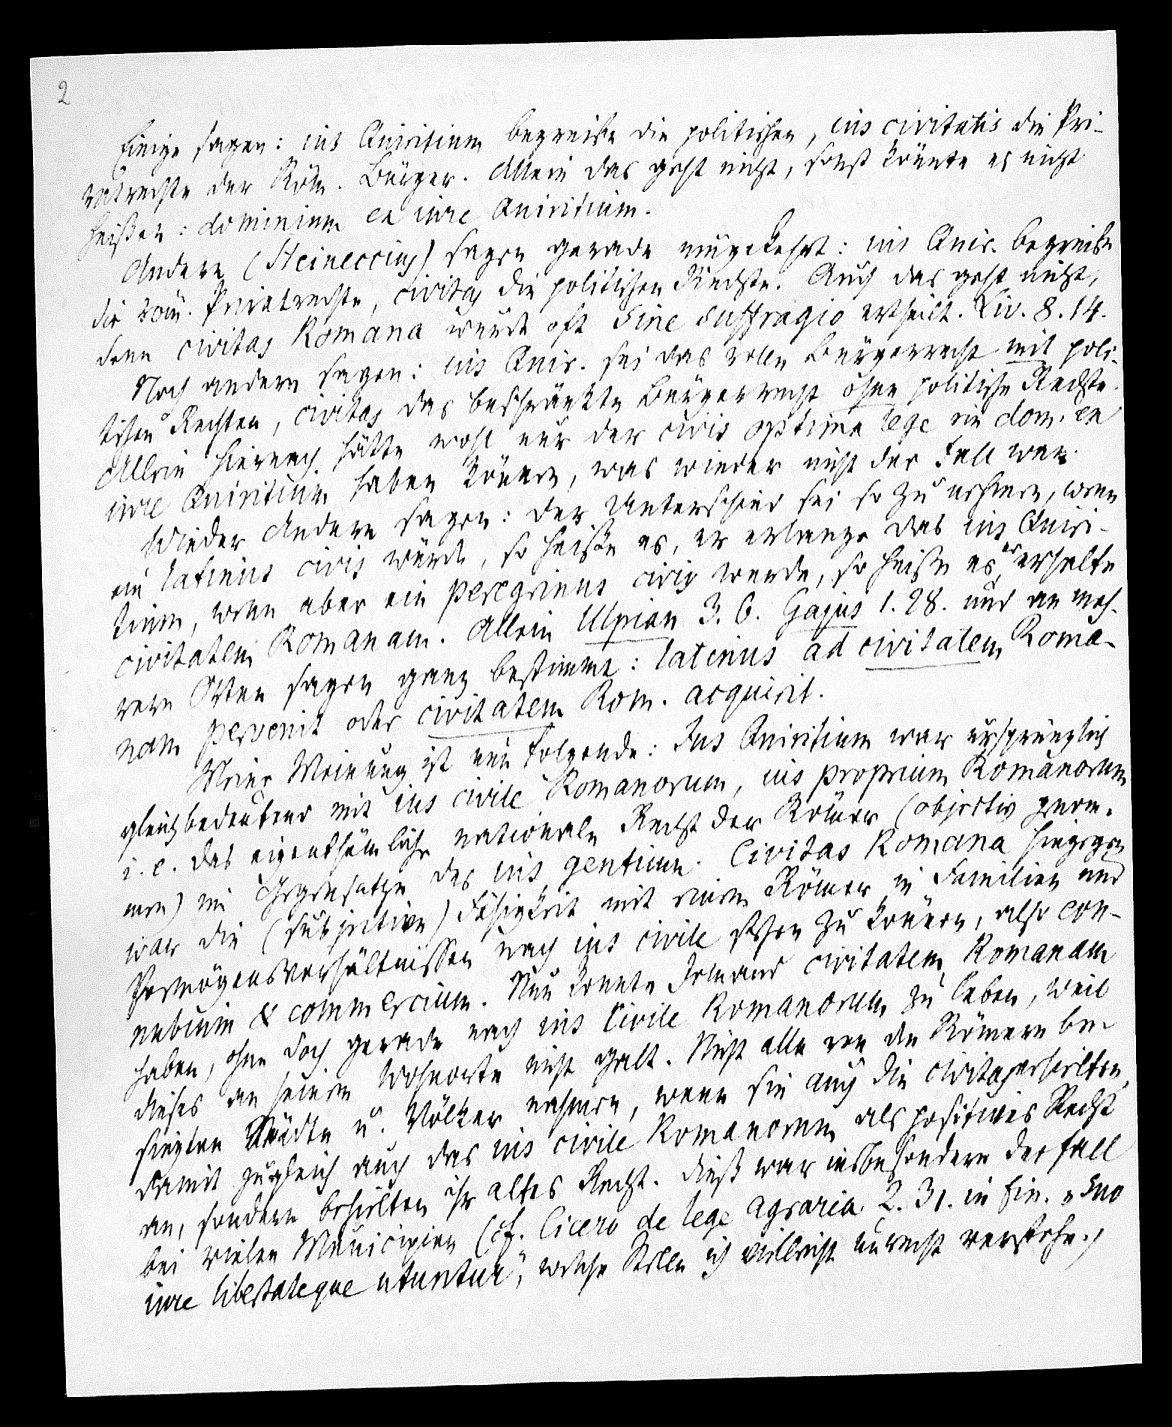 2
Einige sagen: ius Quiritium begreife die politischen, ius civitatis die Pri-
vatrechte der Röm. Bürger. Allein das geht nicht, sonst könnte es nicht
heißen: dominium ex iure Quiritium.
Andere (Heineccius) sagen gerade umgekehrt: ius Quir. begreife
die röm. Privatrechte, civitas die politischen Rechte. Auch das geht nicht,
denn civitas Romana wurde oft sine suffragio ertheilt. Liv. 8. 14.
Noch andere sagen: ius Quir. sei das volle Bürgerrecht mit poli-
tischen Rechten, civitas das beschränkte Bürgerrecht ohne politische Rechte.
Allein hiernach hätte wohl nur der civis optima lege ein dom. ex
iure Quiritium haben können, was wieder nicht der Fall war.
Wieder Andere sagen: der Unterschied sei so zu nehmen, wenn
ein latinus civis würde, so heiße es, er erlange das ius Quiri-
tium, wenn aber ein peregrinus civis werde, so heiße es, er erhalte
civitatem Romanam. Allein Ulpian 3. 6. Gajus 1. 28. und an meh-
rern Orten sagen ganz bestimmt: latinus ad civitatem Roma-
nam pervenit oder civitatem Rom. acquirit.
Meine Meinung ist nun folgende: Jus Quiritium war ursprünglich
gleichbedeutend mit ius civile Romanorum, ius proprium Romanorum
i. e. das eigenthümliche nationale Recht der Römer (objectiv genom-
men) im Gegensatze des ius gentium. Civitas Romana hingegen
war die (subjective) Fähigkeit mit einem Römer in Familien und
Vermögensverhältnissen nach ius civile stehen zu können, also con-
nubium & commercium. Nun konnte Jemand civitatem Romanam
haben, ohne doch gerade nach ius civile Romanorum zu leben, weil
dieses an seinem Wohnorte nicht galt. Nicht alle von den Römern be-
siegten Städte u. Völker nahmen, wenn sie auch die civitas erhielten,
damit zugleich auch das ius civile Romanorum als positives Recht
an, sondern behielten ihr altes Recht. Dieß war insbesondere der Fall
bei vielen Municipien (cf. Cicero de lege agraria 2. 31. in fin. „suo
iure libertateque utuntur", welche Stelle ich vielleicht unrecht verstehe.)